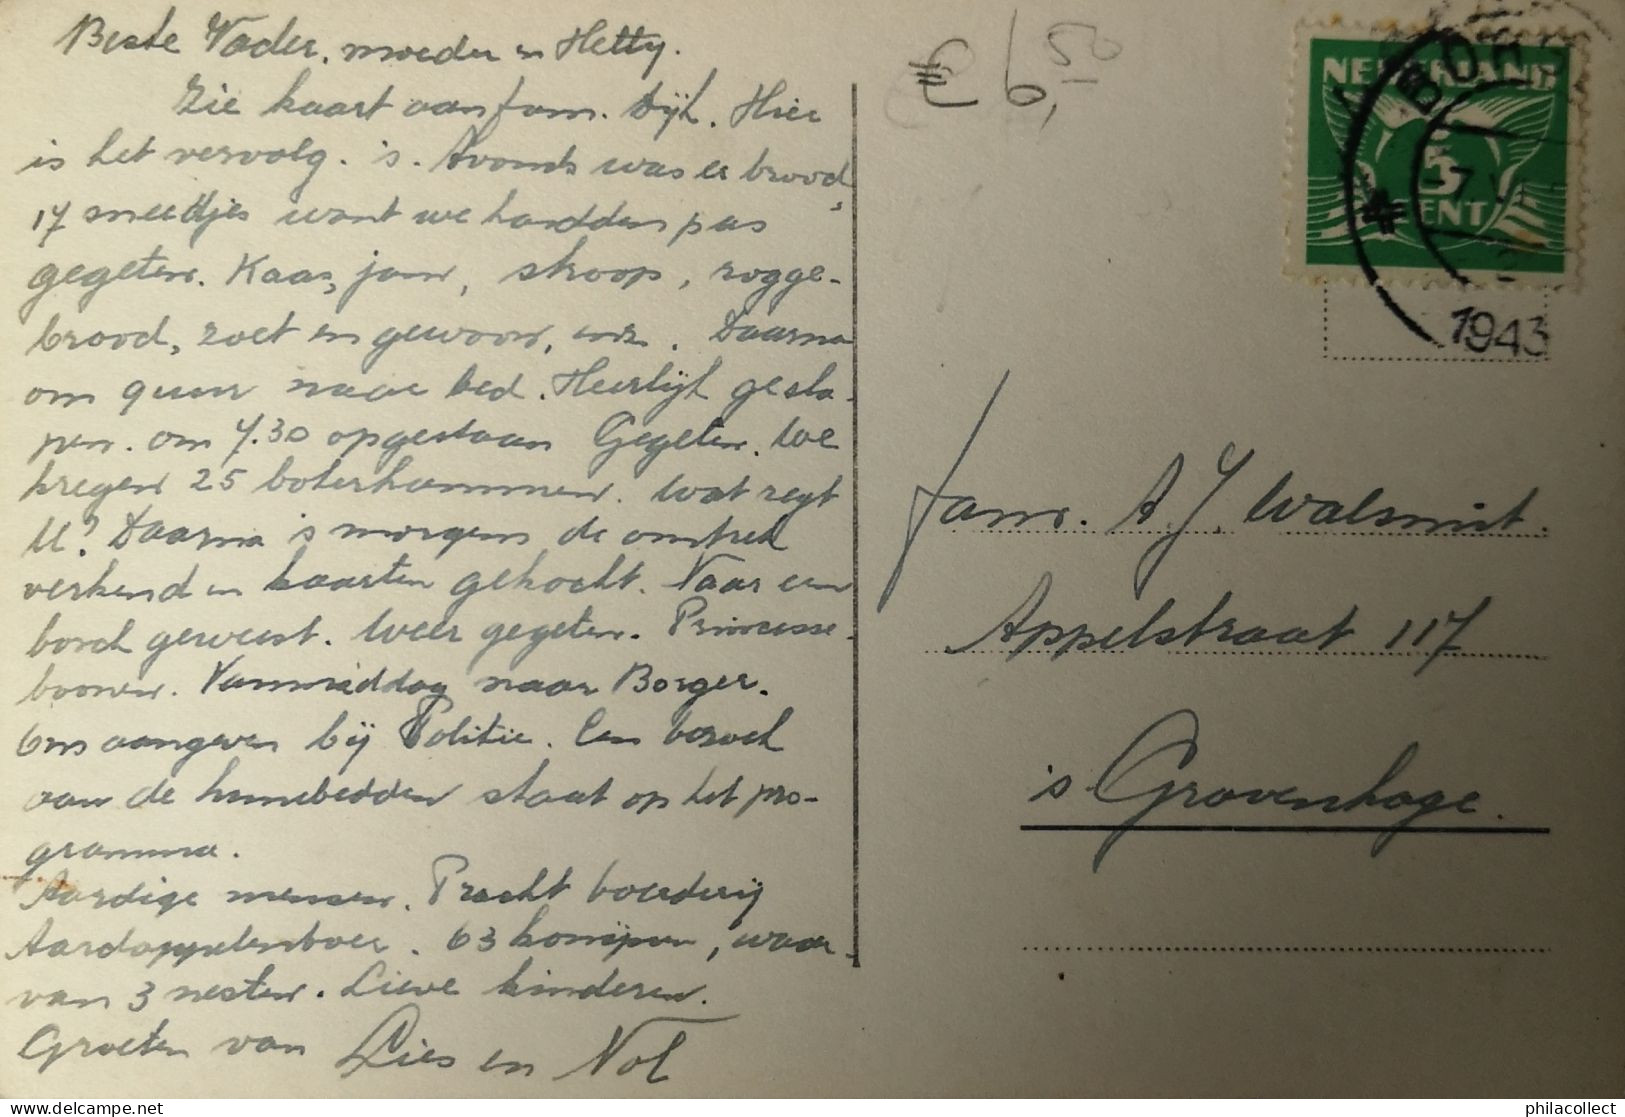 Beste Vader, moeder en Hetty.
Zie kaart aan fam. Dijk. Hier
is het vervolg. 's. Avonds was er brood,
17 sneedjes want we hadden pas
gegeten. Kaas, jam, stroop, rogge-
brood, zoet en gewoon, enz. Daarna
om 9 uur naar bed. Heerlijk gesla-
pen. om 7.30 opgestaan Gegeten. We
kregen 25 boterhammen. Wat zegt
U? Daarna 's morgens de omtrek
verkend en kaarten gekocht. Naar een
borch geweest. Weer gegeten. Princesse-
boonen. Vanmiddag naar Borger.
Ons aangeven bij Politie. Een bezoek
aan de hunebedden staat op het pro-
gramma.
Aardige mensen. Pracht boerderij
Aardappelenboer. 63 konijnen, waar-
van 3 nesten. Lieve kinderen.
Groeten van Lies en Nol
€ 6,50
NEDERLAND
5
CENT
1943
Fam. A. J. Walsmit.
Appelstraat 117
's Gravenhage.
philacollect
www.delcampe.net